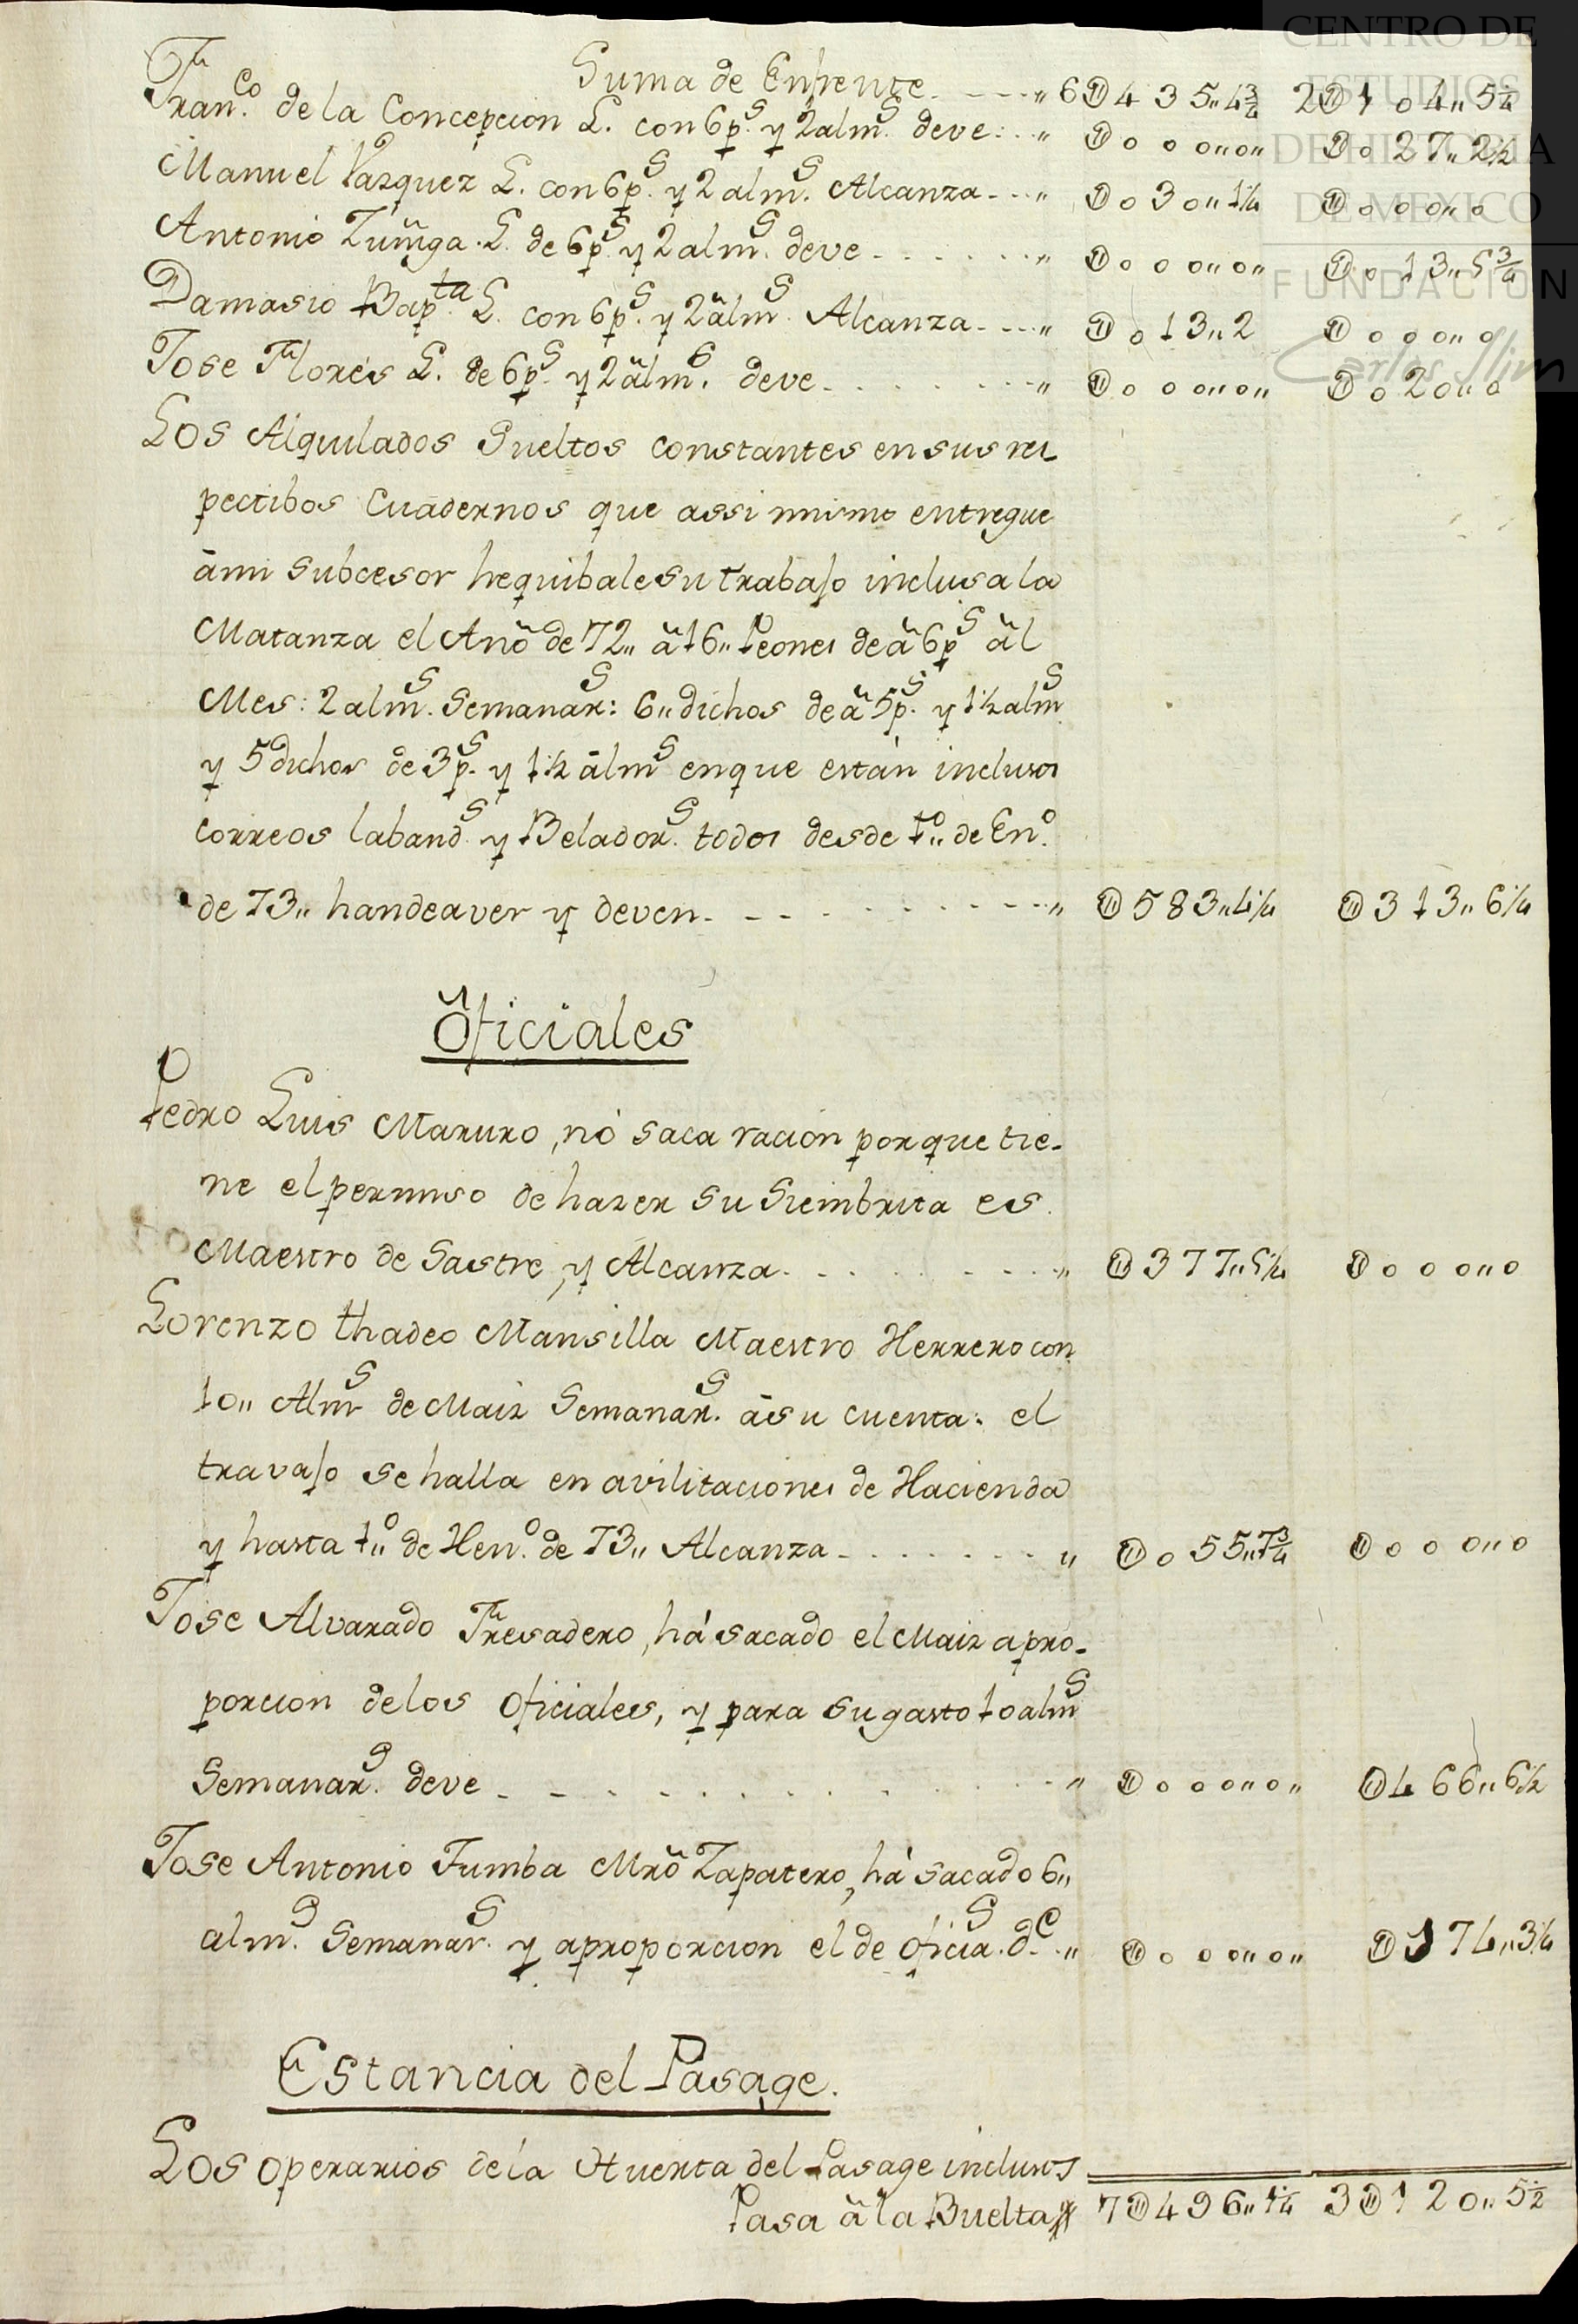 Suma de Enfrente. - - - " 6 U 4 3 5 " 4 3/4 2 U 1 0 4 " 5 1/4
Fran.co de la Concepcion L. con 6 p.s y 2 alm.s deve: . . " U 0 0 0 " 0 " U 0 2 7 " 2 1/2
Manuel Vazquez L. con 6 p.s y 2 alm.s Alcanza - - - " U 0 3 0 " 1 1/4 U 0 0 0 " 0
Antonio Zuñiga. L. de 6 p.s y 2 alm.s deve . . . . . . " U 0 0 0 " 0 " U 0 1 3 " 5 3/4
Damasio Bap.ta L. con 6 p.s y 2 alm.s Alcanza - - - " U 0 1 3 " 2 U 0 0 0 " 0
Jose Flores L. de 6 p.s y 2 alm.s deve - . . . . . . " U 0 0 0 " 0 " U 0 2 0 " 0
Los Alquilados Sueltos constantes en sus res
pectibos Cuadernos que assi mismo entregue
à mi subcesor hequibale su trabajo inclusa la
Matanza el Año de 72 " à 16 " Peones de à 6 p.s àl
Mes: 2 alm.s Semanar.s: 6 " dichos de à 5 p.s y 1 1/2 alm.s
y 5 dichos de 3 p.s y 1 1/2 àlm.s en que estàn inclusos
correos laband.s y Belador.s todos desde 1.o " de En.o
de 73 " han de aver y deven - - - - - - - - - " U 5 8 3 " 4 1/4 U 3 1 3 " 6 1/4
Oficiales
Pedro Luis Maruro, nó saca racion porque tie-
ne el permiso de hazer su Siembrita es
Maestro de Sastre, y Alcanza . . . . . . . " U 3 7 7 " 5 1/2 U 0 0 0 " 0
Lorenzo thadeo Mansilla Maestro Herrero con
10 " Alm.s de Maiz Semanar.s à su cuenta: el
travajo se halla en avilitaciones de Hacienda
y hasta 1.o " de Hen.o de 73 " Alcanza - . . . . . . " U 0 5 5 " 7 3/4 U 0 0 0 " 0
Jose Alvarado Fresadero, há sacado el Maiz apro-
porcion de los Oficiales, y para su gasto 10 alm.s
Semanar.s deve - - - - . . . . . . . . " U 0 0 0 " 0 " U 4 6 6 " 6 1/2
Jose Antonio Fumba Mrõ Zapatero, há sacado 6 "
alm.s Semanar.s y aproporcion el de Oficia.s d.e - " U 0 0 0 " 0 " U 1 7 4 " 3 1/4
Estancia del Pasage.
Los operarios de la Huerta del Pasage inclusos
Pasa à la Buelta 7 U 4 9 6 " 1 1/4 3 U 1 2 0 " 5 1/2
CENTRO DE
ESTUDIOS
DE HISTORIA
DE MEXICO
FUNDACIÓN
Carlos Slim